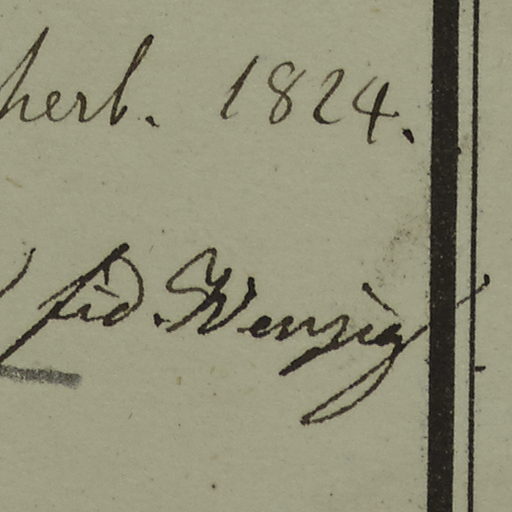 herb. 1824.
fid. Wenzig